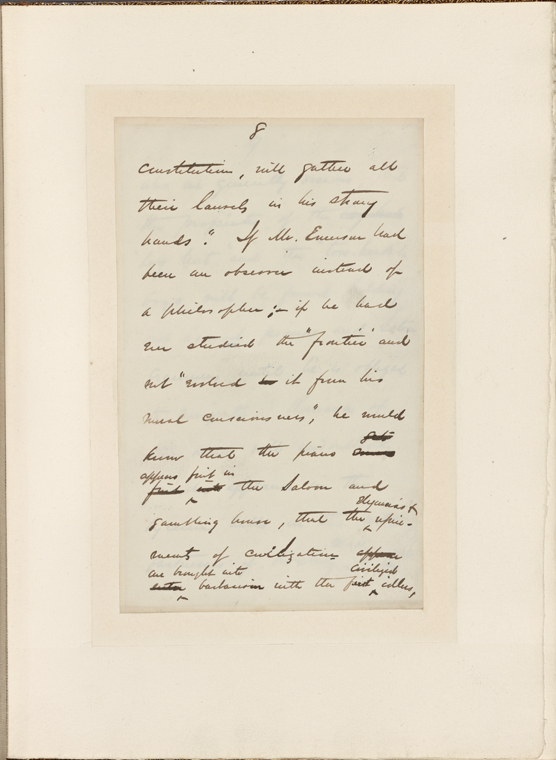 8
constitution, will gather all
their laurels in his strong
hands." If Mr. Emerson had
been an observer instead of
a philosopher; – if he had
ever studied the "frontier" and
not "evolved it from his
moral consciousness", he would
get
know that the piano comes
appears first in
first into the Saloon and
elegancies &
gambling house, that the refine-
ments of civilization appear
are brought into civilized
enter barbarism with the first idlers,